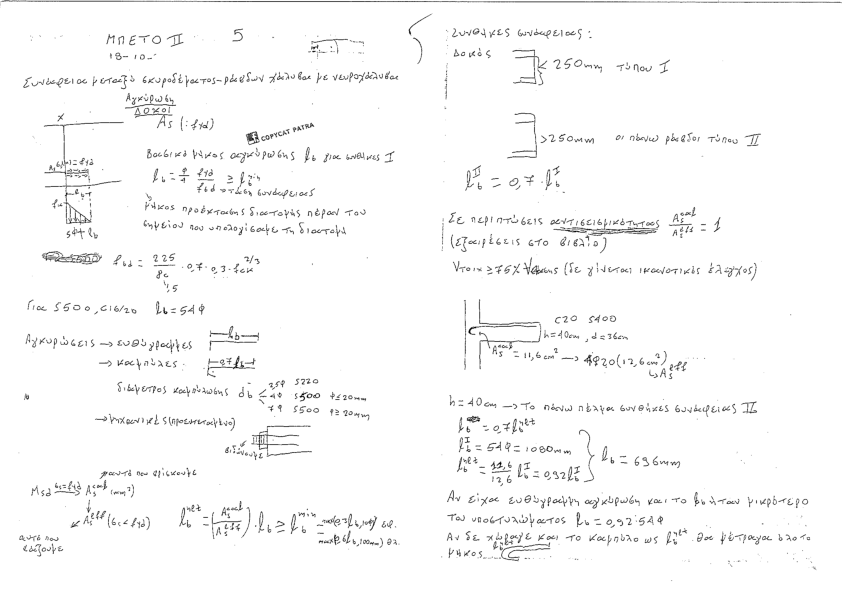 ΜΠΕΤΟ ΙΙ 5
18-10-
Συνάφεια μεταξύ σκυροδέματος-ράβδων χάλυβα με νευροχάλυβα
Αγκύρωση
ΔΟΚΟΙ
As (:fyd)
x
COPYCAT PATRA
Βασικό μήκος αγκύρωσης lb για συνθήκες Ι
lb = φ/4 fyd/fbd ≥ lb min
τάση συνάφειας
μήκος προέκτασης διατομής πέραν του
σημείου που υπολογίσαμε τη διατομή
54φ lb
fbd = 2.25/γc · 0,7 · 0,3 · fck^2/3
1,5
Για S500, C16/20 lb = 54φ
Αγκυρώσεις → ευθύγραμμες lb
→ καμπύλες 0,7 lb
διάμετρος καμπύλωσης db
2,5φ S220
4φ S500 φ≤20mm
7φ S500 φ≥20mm
→ μηχανικές (προεντεταμένο)
βιδώνουμε
αυτό που βρίσκουμε
Msd → As cal (mm²)
As eff (σs<fyd)
αυτό που βάζουμε
lb net = (As cal/As eff) · lb ≥ lb min
max(0,3lb,10φ) εφ.
lb,100mm) θλ.
Συνθήκες συνάφειας:
Δοκός
< 250mm τύπου Ι
>250mm οι πάνω ράβδοι τύπου ΙΙ
lb ΙΙ = 0,7 · lb Ι
Σε περιπτώσεις αντισεισμικότητας As cal/As eff = 1
(εξαιρέσεις στο βιβλίο)
Vτοιχ ≥75% Vβάσης (δε γίνεται ικανοτικός έλεγχος)
C20 S400
h=40cm, d=36cm
As cal = 11,6cm² → 4φ20 (12,6cm²)
As eff
h=40cm → Το πάνω πέλμα συνθήκες συνάφειας ΙΙ
lb = 0,7 lb net
lb Ι = 54φ = 1080mm
lb net = 11,6/12,6 lb Ι = 0,92 lb Ι
lb = 696mm
Αν είχαμε ευθύγραμμη αγκύρωση και το lb ήταν μικρότερο
του υποστυλώματος lb = 0,92·54φ
Αν δε χώραγε και το καμπύλο ως lb net θα μέτραγα όλο το
μήκος lb net